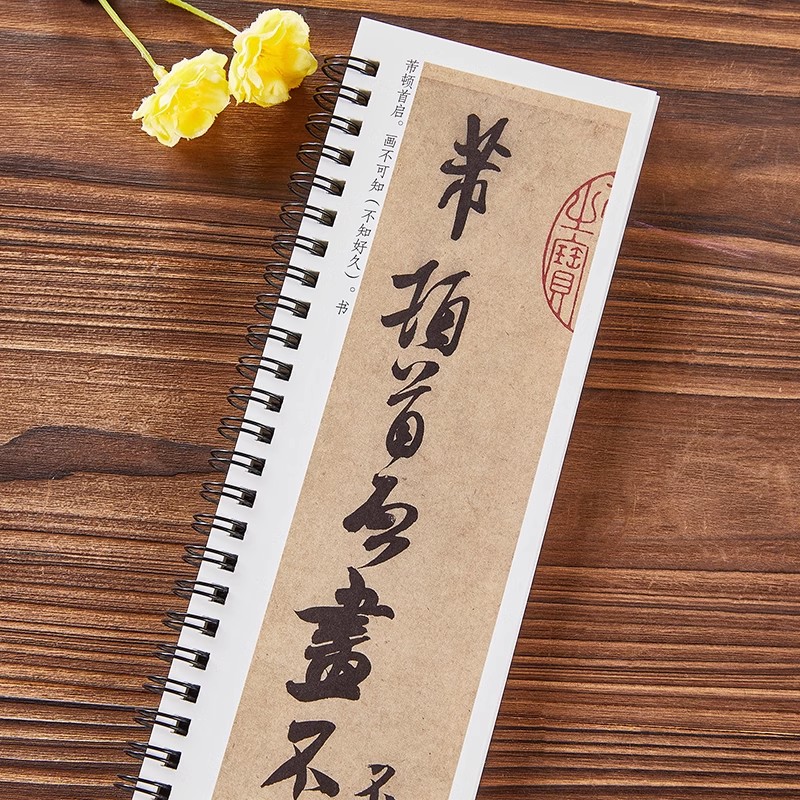 芾顿首启。画不可知（不知好久）。书
芾頓首启畫不
不
之寶